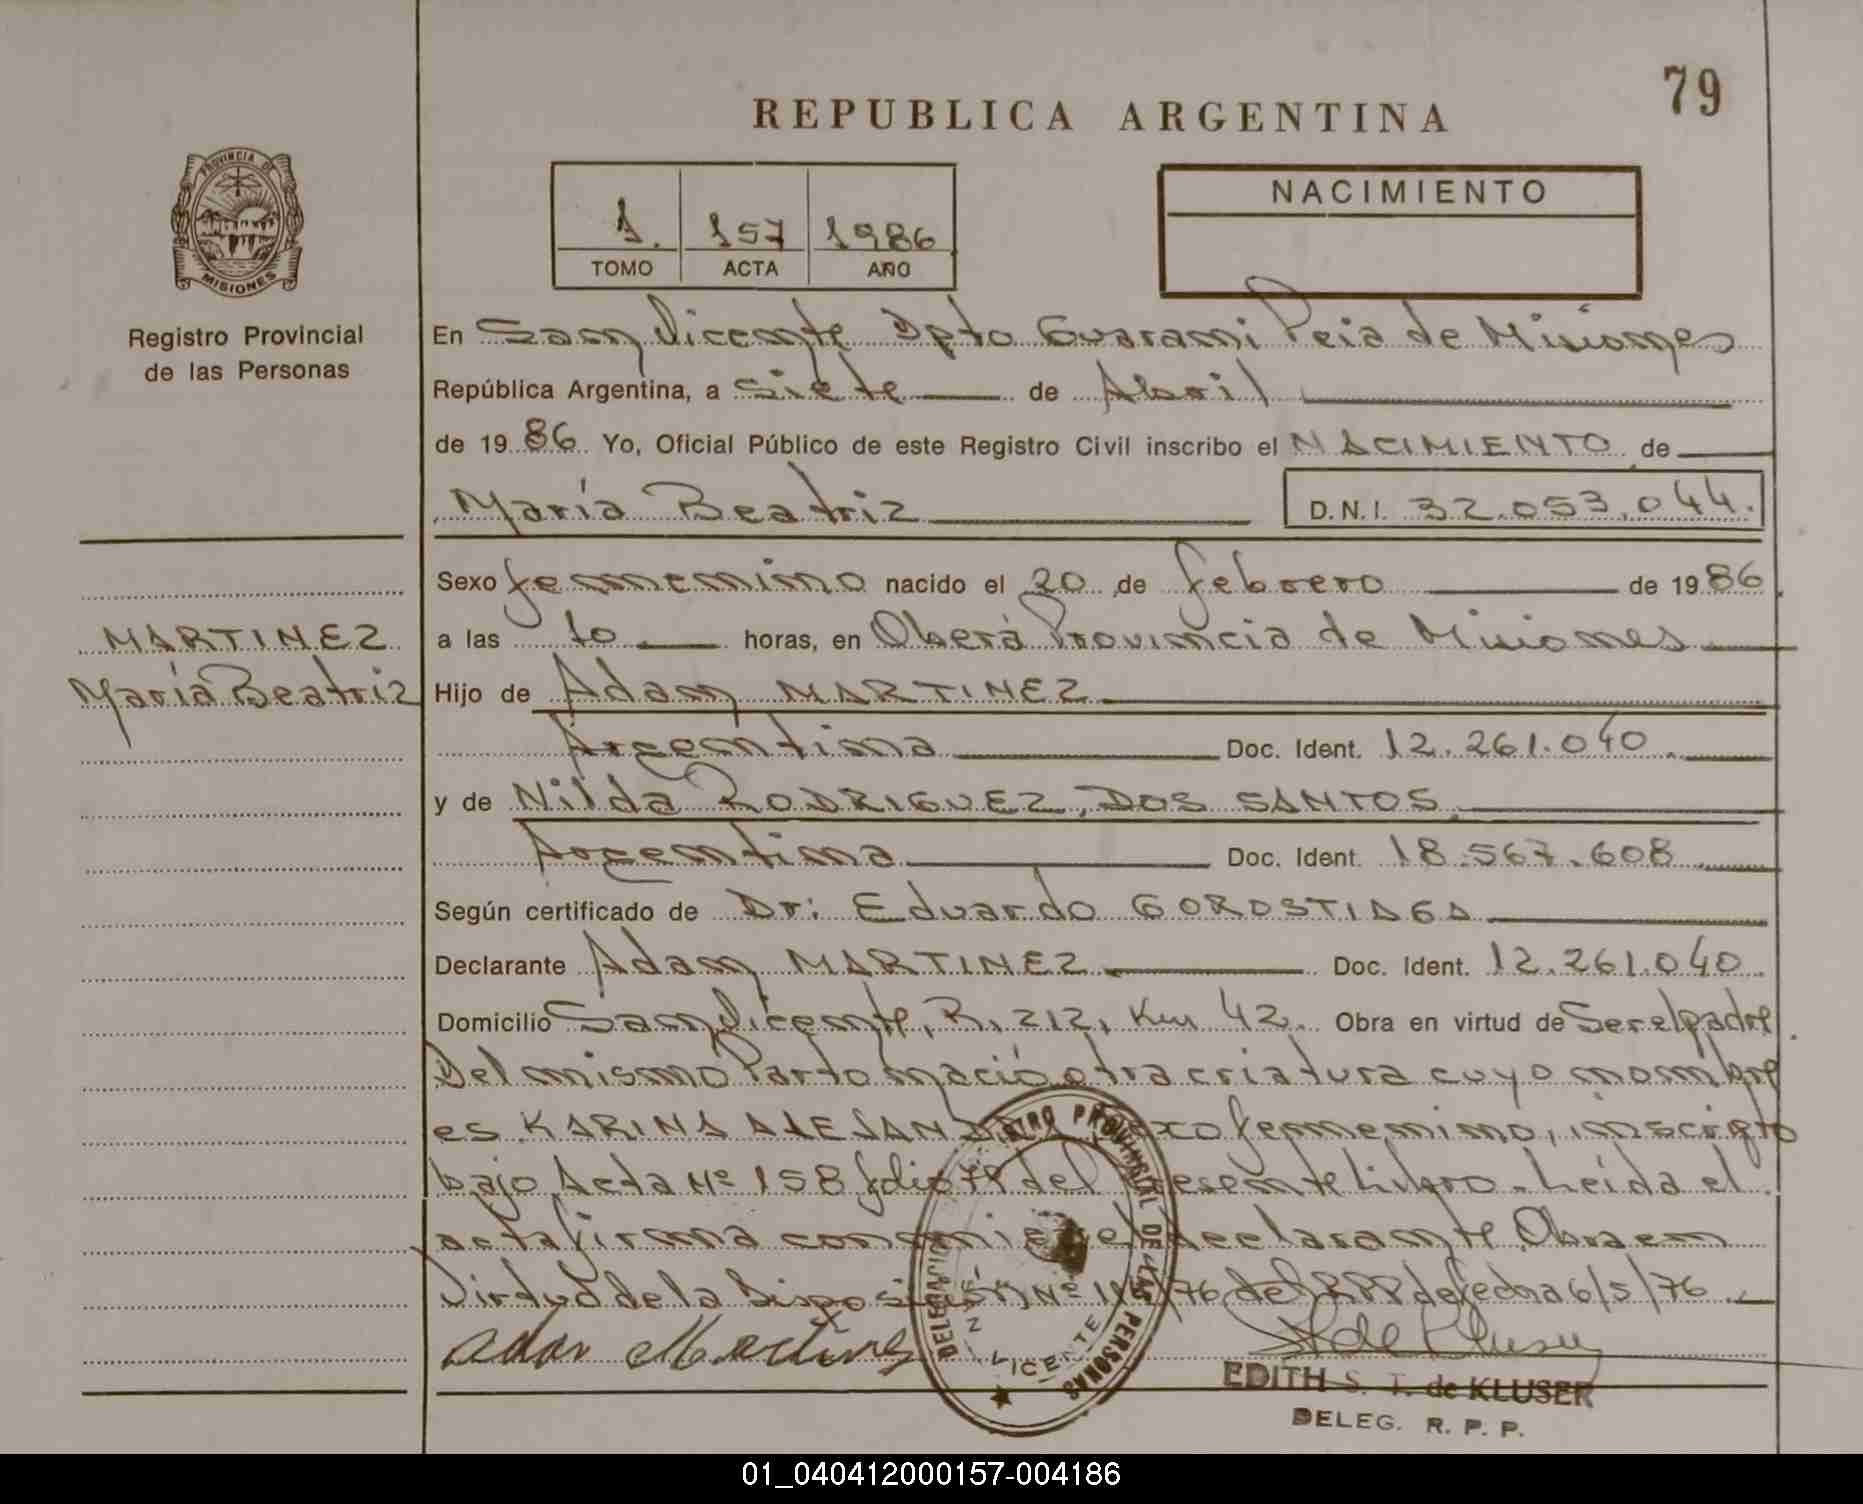 79
REPUBLICA ARGENTINA
PROVINCIA DE
MISIONES
Registro Provincial
de las Personas
1. 157 1986
TOMO ACTA AÑO
NACIMIENTO
En San Vicente Dpto Guarani Pcia de Misiones
República Argentina, a siete de Abril
de 1986 Yo, Oficial Público de este Registro Civil inscribo el NACIMIENTO de
María Beatriz D.N.I. 32.053.044.
Sexo femenino nacido el 20 de febrero de 1986
MARTINEZ
María Beatriz
a las 10 horas, en Oberá Provincia de Misiones
Hijo de Adan MARTINEZ
Argentina Doc. Ident. 12.261.040.
y de Nilda RODRIGUEZ DOS SANTOS
Argentina Doc. Ident. 18.567.608
Según certificado de Dr: Eduardo GOROSTIAGA
Declarante Adan MARTINEZ Doc. Ident. 12.261.040.
Domicilio San Vicente, R. 212, Km 42. Obra en virtud de Ser el padre
Del mismo Parto nació otra criatura cuyo nombre
es KARINA ALEJANDRA sexo femenino, inscripto
bajo Acta Nº 158 folio 79 del presente Libro. Leída el
acta firma conmigo el declarante. Obra en
Virtud de la Disposición Nº /76 del RPP de fecha 6/5/76
Adan Martinez
REGISTRO PROVINCIAL DE LAS PERSONAS
DELEGACION
SAN VICENTE
EDITH S. T. de KLUSER
DELEG. R. P. P.
01_040412000157-004186